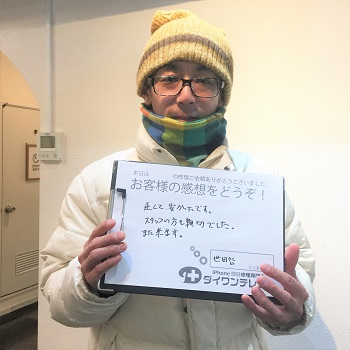 本日は の修理ご依頼ありがとうございました。
お客様の感想をどうぞ！
正しく、安かったです。
スタッフの方も親切でした。
また来ます。
世田谷
iPhone即日修理専門
ダイワンテレ